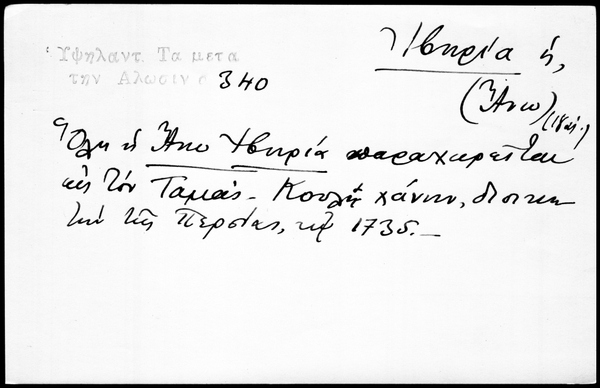 Ὑψηλαντ. Τα μετα
την Αλωσιν σ 340
Ἰβηρία ἡ,
(Ἄνω) (18 αἰ.)
Ὅλη ἡ Ἄνω Ἰβηρία παραχωρεῖται
εἰς τὸν Ταμάς-Κουλῆ χάνην, διοικη
τὴν τῆς Περσίας, τῷ 1735.—